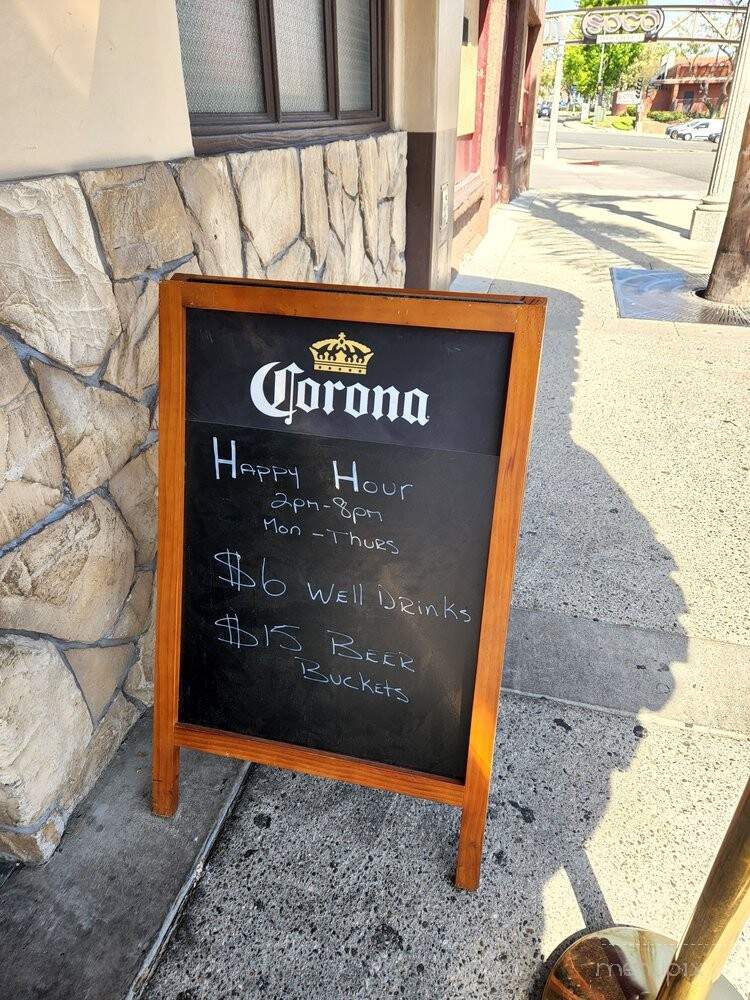 SOCO
Corona
Happy Hour
2pm-8pm
Mon - Thurs
$6 Well Drinks
$15 Beer
Buckets